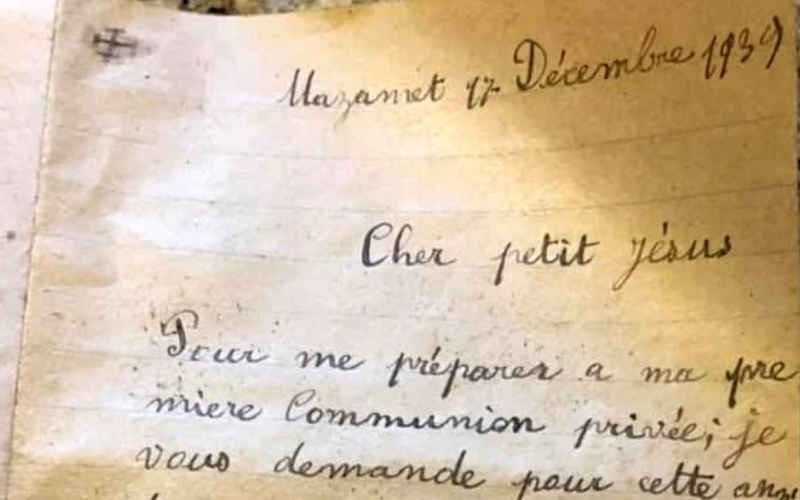 Mazamet 17 Décembre 1939
Cher petit Jésus
Pour me préparer a ma pre
miere Communion privée; je
vous demande pour cette